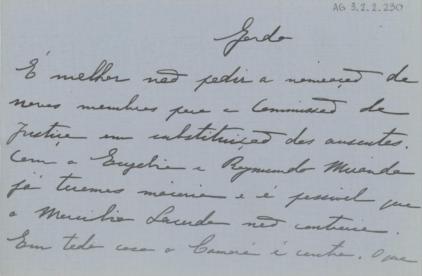 AG 3.2.2.230
Gordo
É melhor não pedir a nomeação de
novos membros para a Commissão de
Justiça em substituição dos ausentes.
Com o Eugenio e Raymundo Miranda
já teremos maioria e é possivel que
o Mercilio Lacerda não contrarie.
Em todo caso o Canoré é contra. O que